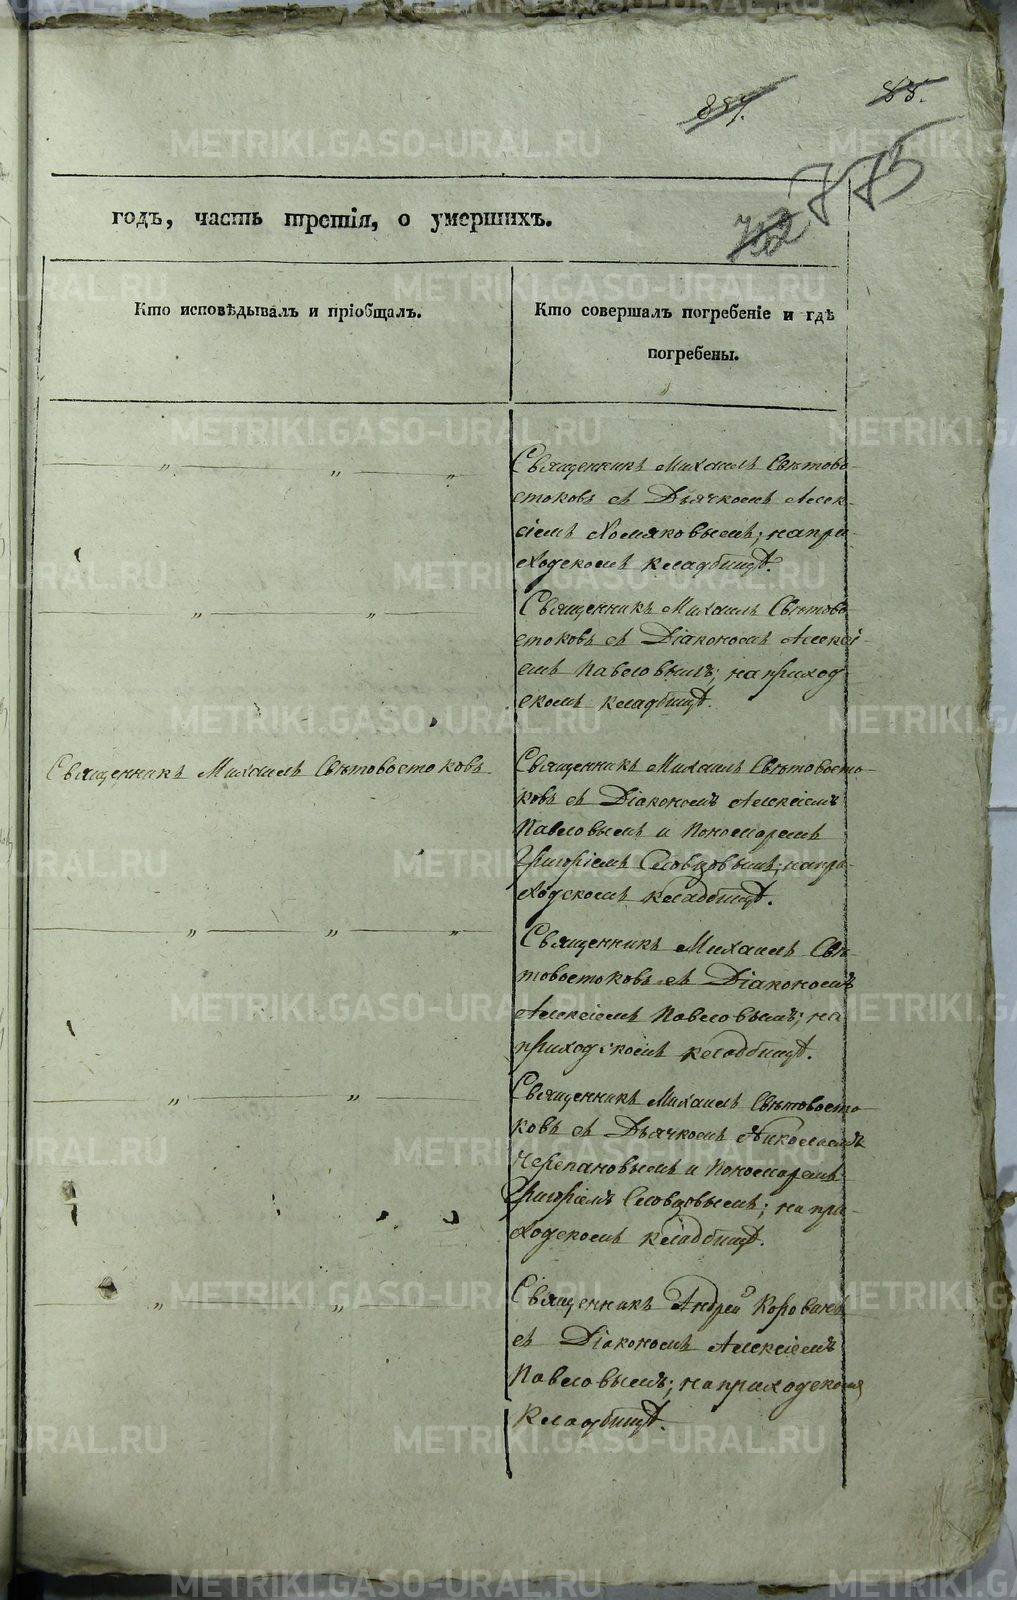 88.
775
742
годъ, часть третія, о умершихъ.
Кто исповѣдывалъ и пріобщалъ.
Кто совершалъ погребеніе и гдѣ
погребены.
— „ — „ — „
Священникъ Михаилъ Свѣтово-
стоковъ съ Дьячкомъ Алек-
сіемъ Хомяковымъ; на при-
ходскомъ кладбищѣ.
— „ — „ —
Священникъ Михаилъ Свѣтово-
стоковъ съ Діакономъ Алексі-
емъ Павловымъ; на приход-
скомъ кладбищѣ.
Священникъ Михаилъ Свѣтовостоковъ.
Священникъ Михаилъ Свѣтовосто-
ковъ съ Діакономъ Алексіемъ
Павловымъ и Пономаремъ
Григоріемъ Словцовымъ; на при-
ходскомъ кладбищѣ.
— „ — „ — „ —
Священникъ Михаилъ Свѣ-
товостоковъ съ Діакономъ
Алексіемъ Павловымъ; на
приходскомъ кладбищѣ.
— „ — „ —
Священникъ Михаилъ Свѣтовосто-
ковъ съ Дьячкомъ Николаемъ
Черепановымъ и Пономаремъ
Григоріемъ Словцовымъ; на при-
ходскомъ кладбищѣ.
— „ — „ —
Священникъ Андрей Коровинъ
съ Діакономъ Алексіемъ
Павловымъ; на приходскомъ
кладбищѣ.
METRIKI.GASO-URAL.RU